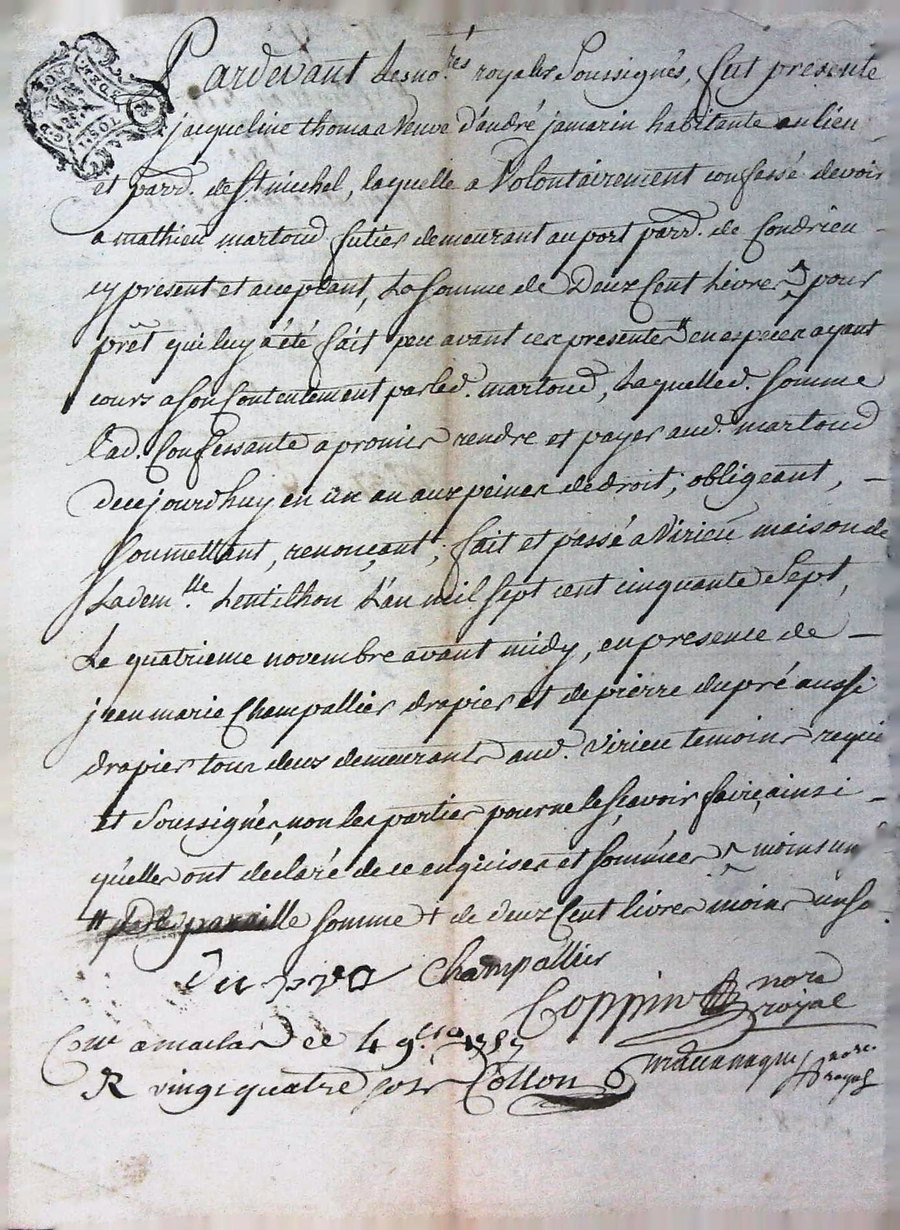 Pardevant les no.res royales Soussignés, fut présente
jacqueline thomas Veuve d'andré jamarin habitante au lieu
et parr. de St. michel, laquelle a Volontairement confessé devoir
a mathieu martoud futier demeurant au port parr. de Condrieu -
cy present et acceptant, La Somme de Deux Cent Livres ^ pour
prêt qui luy a été fait peu avant ces presentes # en especes ayant
cours a son Contentement par led. martoud, Laquelle d. Somme
lad. Confessante a promis rendre et payer aud. martoud
de cejourdhuy en un an aux peines de droit; obligeant, -
Soumettant, renonçant; fait et passé a Virieu maison de
La dem.lle Lentilhon L'an mil sept cent cinquante Sept,
Le quatrieme novembre avant midy, en presence de -
jean marie Champallier drapier et de pierre dupré aussi
drapier tous deux demeurants aud. Virieu temoins requis
et Soussignés, non les parties pour ne le sçavoir faire, ainsi -
qu'elles ont declaré de ce enquises et sommées ^ moins un
# de pareille somme + de deux Cent livres moins un so.
Du pré Champallier
Coppin no.re royal
Con.lé a maclas ce 4 9.bre 1757
R vingt quatre sols Cotton
no.re royal